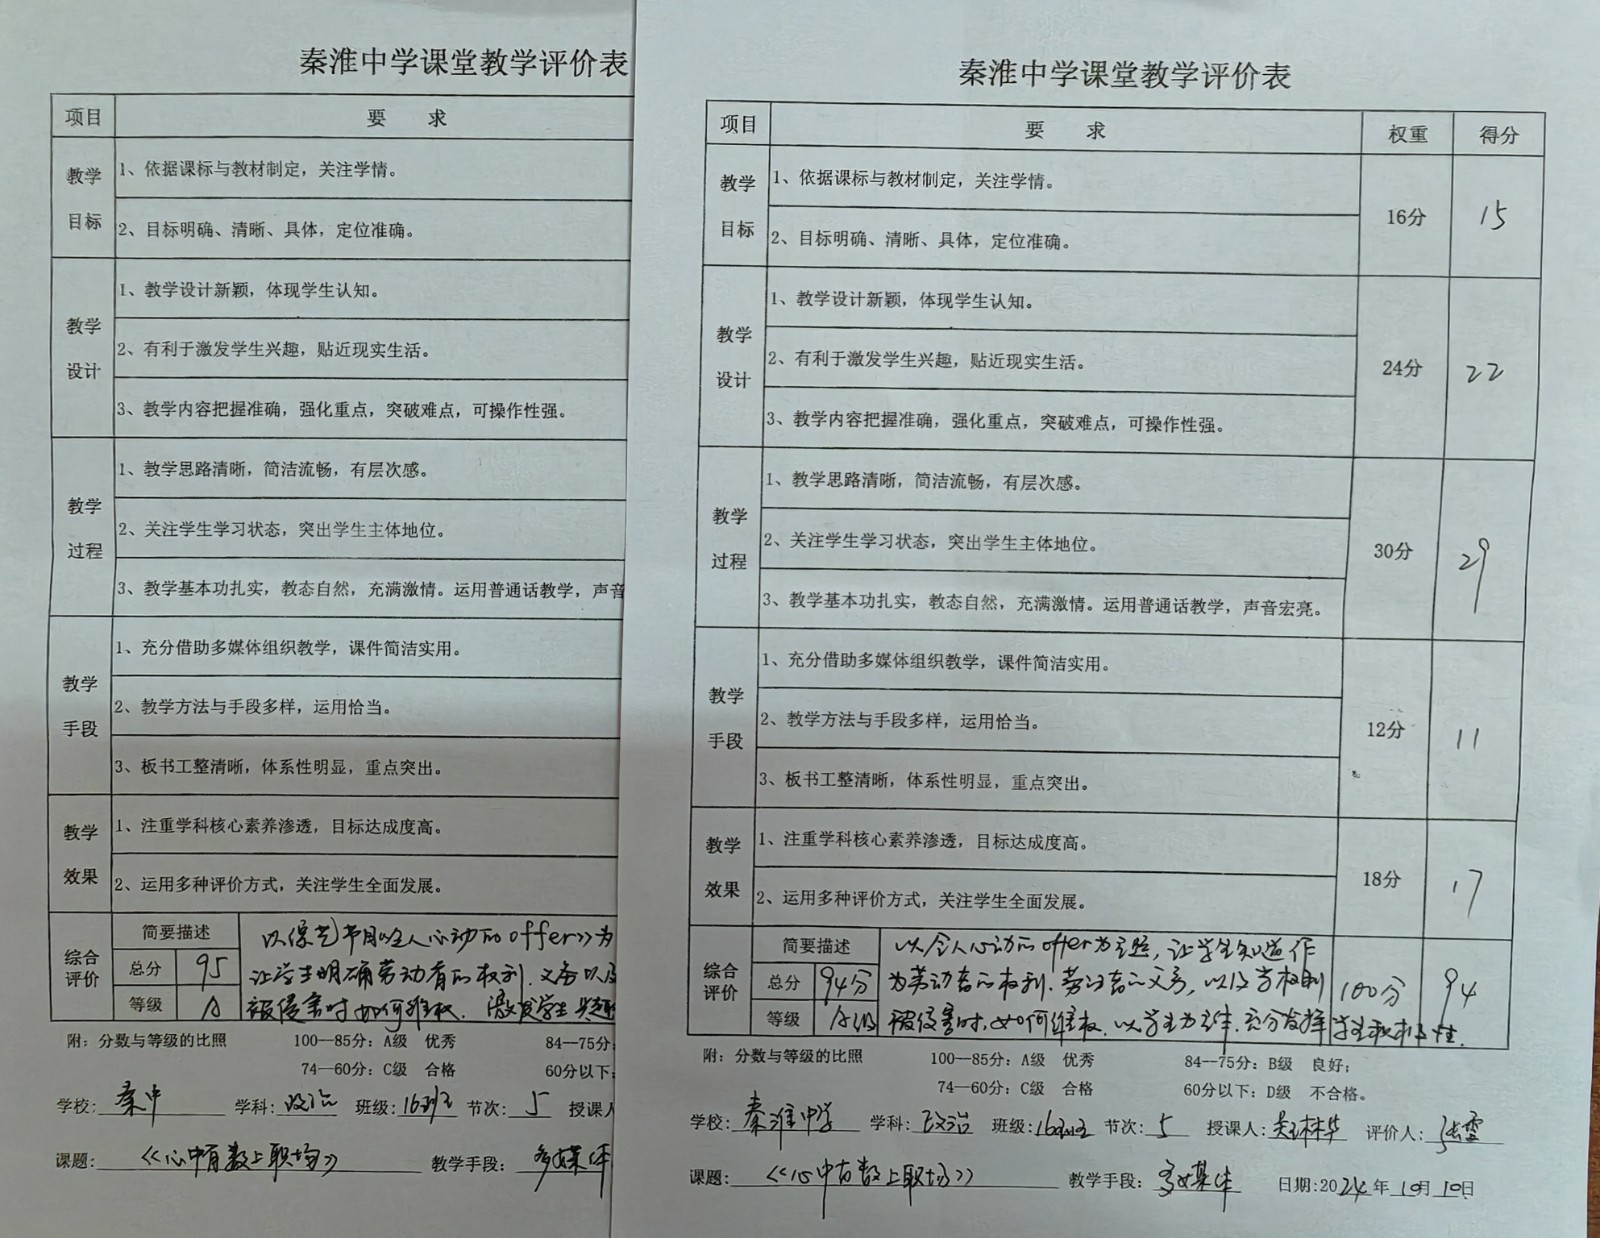 秦淮中学课堂教学评价表
项目 要 求
教学目标
1、依据课标与教材制定，关注学情。
2、目标明确、清晰、具体，定位准确。
教学设计
1、教学设计新颖，体现学生认知。
2、有利于激发学生兴趣，贴近现实生活。
3、教学内容把握准确，强化重点，突破难点，可操作性强。
教学过程
1、教学思路清晰，简洁流畅，有层次感。
2、关注学生学习状态，突出学生主体地位。
3、教学基本功扎实，教态自然，充满激情。运用普通话教学，声音
教学手段
1、充分借助多媒体组织教学，课件简洁实用。
2、教学方法与手段多样，运用恰当。
3、板书工整清晰，体系性明显，重点突出。
教学效果
1、注重学科核心素养渗透，目标达成度高。
2、运用多种评价方式，关注学生全面发展。
综合评价
简要描述
总分 95
等级 A
以综艺节目《令人心动的offer》为
让学生明确劳动者的权利、义务以及
被侵害时如何维权.激发学生
附：分数与等级的比照 100—85分：A级 优秀 84—75分：
74—60分：C级 合格 60分以下：
学校：秦中 学科：政治 班级：16班 节次：5 授课人
课题：《心中有数上职场》 教学手段：多媒体
秦淮中学课堂教学评价表
项目 要 求 权重 得分
教学目标 16分 15
1、依据课标与教材制定，关注学情。
2、目标明确、清晰、具体，定位准确。
教学设计 24分 22
1、教学设计新颖，体现学生认知。
2、有利于激发学生兴趣，贴近现实生活。
3、教学内容把握准确，强化重点，突破难点，可操作性强。
教学过程 30分 29
1、教学思路清晰，简洁流畅，有层次感。
2、关注学生学习状态，突出学生主体地位。
3、教学基本功扎实，教态自然，充满激情。运用普通话教学，声音宏亮。
教学手段 12分 11
1、充分借助多媒体组织教学，课件简洁实用。
2、教学方法与手段多样，运用恰当。
3、板书工整清晰，体系性明显，重点突出。
教学效果 18分 17
1、注重学科核心素养渗透，目标达成度高。
2、运用多种评价方式，关注学生全面发展。
综合评价 100分 94
简要描述
总分 94分
等级 A级
以令人心动的offer为主题，让学生知道作
为劳动者的权利、劳动者的义务，以及当权利
被侵害时，如何维权.以学生为主体，充分发挥学生积极性.
附：分数与等级的比照 100—85分：A级 优秀 84—75分：B级 良好；
74—60分：C级 合格 60分以下：D级 不合格。
学校：秦淮中学 学科：政治 班级：16班 节次：5 授课人： 评价人：张雪
课题：《心中有数上职场》 教学手段：多媒体 日期：2024年10月10日